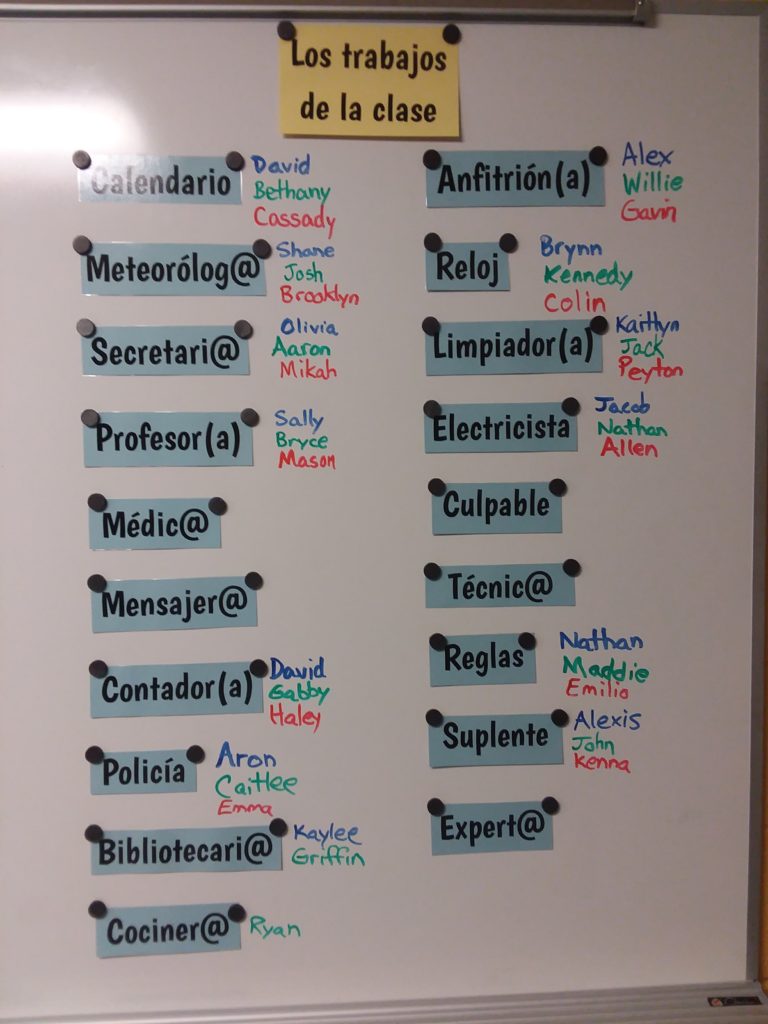 Los trabajos
de la clase
Calendario
David
Bethany
Cassady
Meteorólog@
Shane
Josh
Brooklyn
Secretari@
Olivia
Aaron
Mikah
Profesor(a)
Sally
Bryce
Mason
Médic@
Mensajer@
Contador(a)
David
Gabby
Haley
Policía
Aron
Caitlee
Emma
Bibliotecari@
Kaylee
Griffin
Cociner@
Ryan
Anfitrión(a)
Alex
Willie
Gavin
Reloj
Brynn
Kennedy
Colin
Limpiador(a)
Kaitlyn
Jack
Peyton
Electricista
Jacob
Nathan
Allen
Culpable
Técnic@
Reglas
Nathan
Maddie
Emilio
Suplente
Alexis
John
Kenna
Expert@